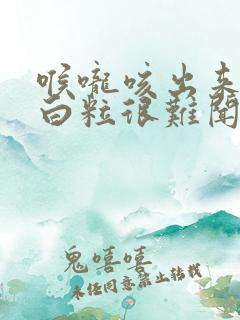 喉嚨咳出來
白粒很難聞
鬼嘻嘻
未经同意禁止转载